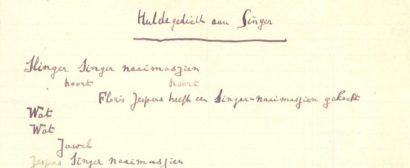 Huldegedicht aan Singer
Slinger Singer naaimasjien
hoort hoort
Floris Jespers heeft een Singer-naaimasjien gekocht
Wat
Wat
Jawel
Jespers Singer naaimasjien